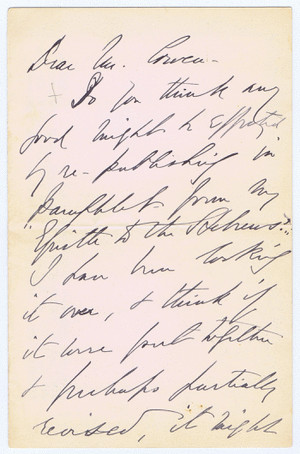 Dear Mr. Cowen -
+ Do you think any
good might be effected
by re-publishing in
pamphlet form my
"Epistle to the Hebrews"?
I have been looking
it over, & think if
it were put together
& perhaps partially
revised, it might